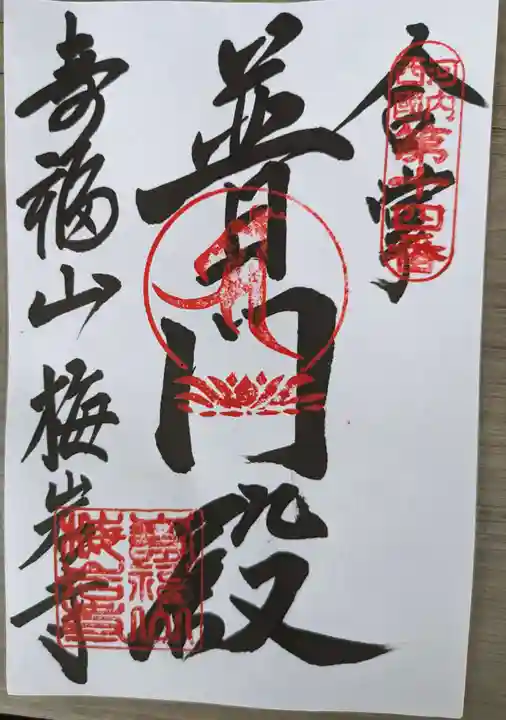 合掌
河内
西國
第十四番
普門殿
壽福山 梅岩寺
壽福山
梅岩寺